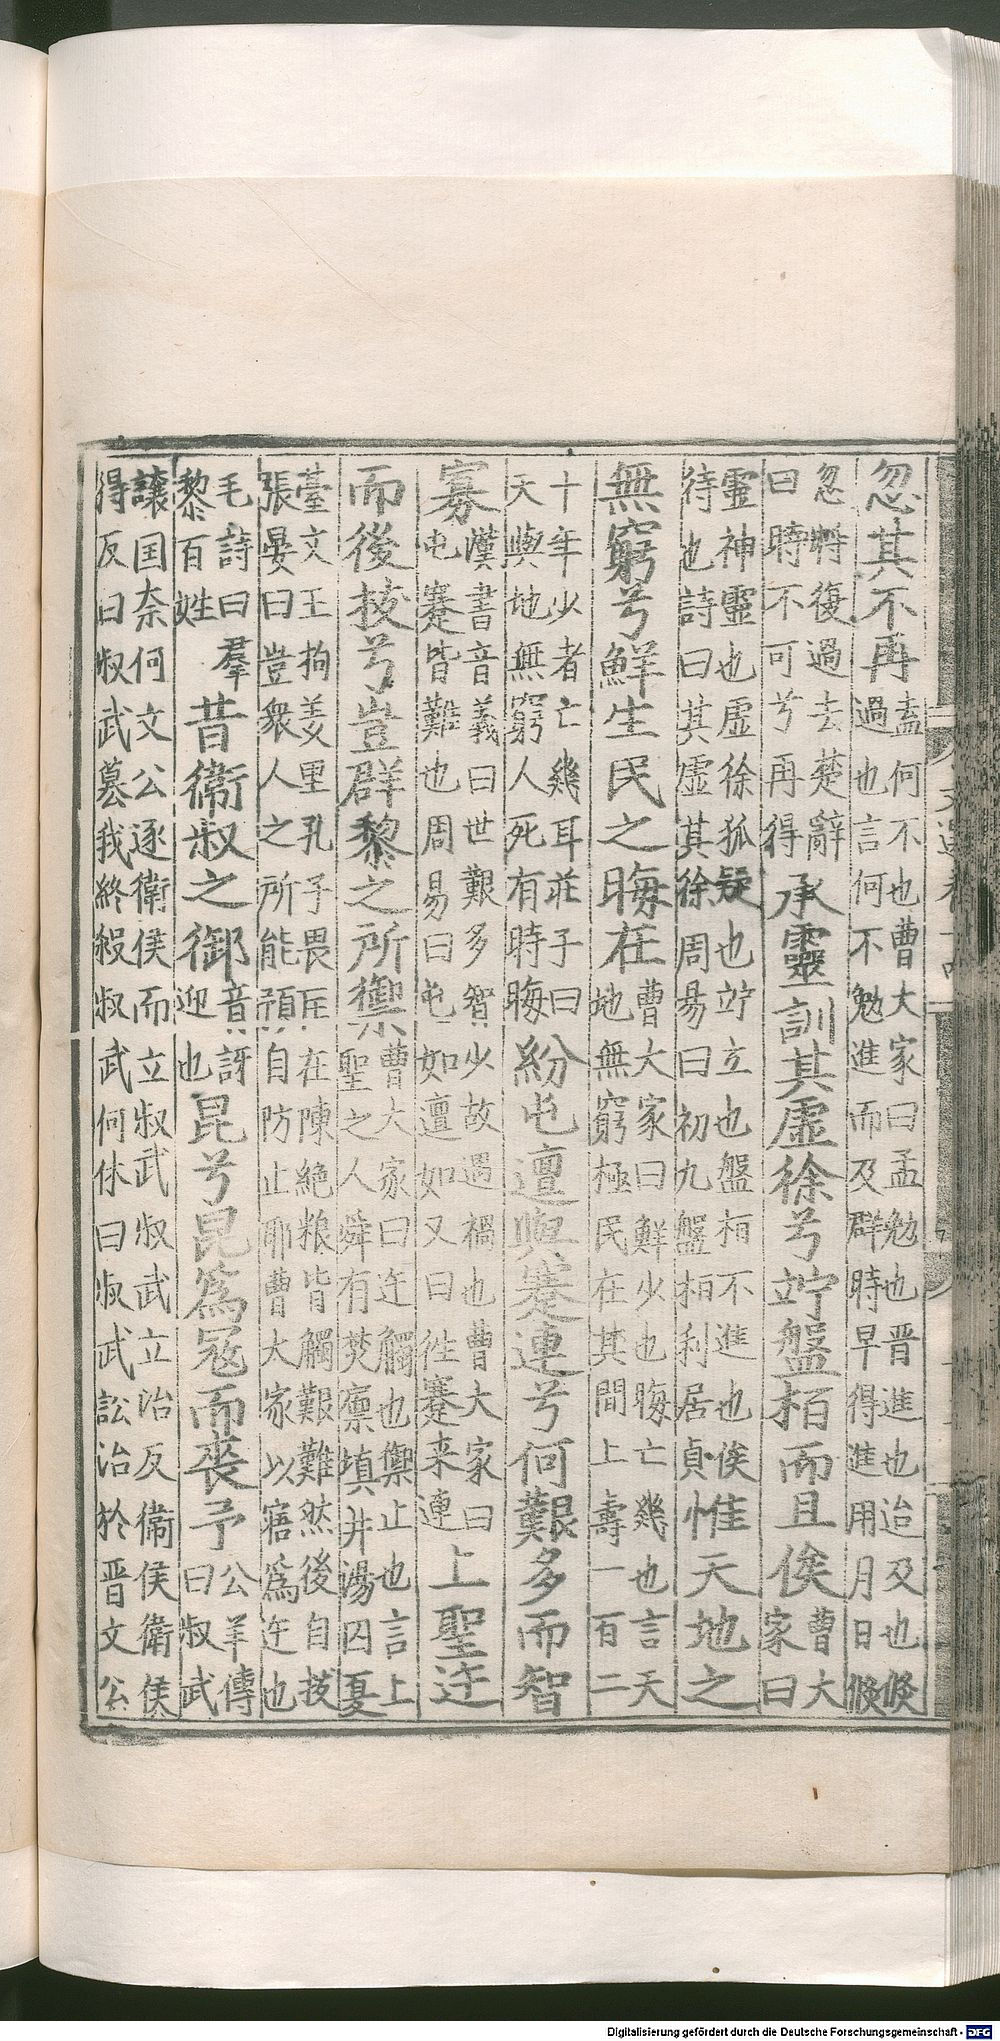 忽其不再盍何不也曹大家曰孟勉也晋進也迨及也倏
過也言何不勉進而及群時早得進用月日倏
忽將復過去楚辭
曰時不可兮再得承靈訓其虛徐兮竚盤桓而且俟曹大
家曰
靈神靈也虛徐狐疑也竚立也盤桓不進也俟
待也詩曰其虛其徐周易曰初九盤桓利居貞惟天地之
無窮兮鮮生民之晦在曹大家曰鮮少也晦亡幾也言天
地無窮極民在其間上壽一百二
十年少者亡幾耳莊子曰
天與地無窮人死有時晦紛屯邅與蹇連兮何艱多而智
寡漢書音義曰世艱多智少故遇禍也曹大家曰
屯蹇皆難也周易曰屯如邅如又曰往蹇来連上聖迕
而後拔兮豈群黎之所禦曹大家曰迕觸也禦止也言上
聖之人舜有焚廪填井湯囚夏
臺文王拘羑里孔子畏匡在陳絶粮皆觸艱難然後自拔
張晏曰豈衆人之所能預自防止耶曹大家以寤為迕也
毛詩曰羣
黎百姓昔衞叔之御音訝
迎也昆兮昆為寇而喪予公羊傳
曰叔武
讓国奈何文公逐衛侯而立叔武叔武立治反衞侯衛侯
得反曰叔武篡我終殺叔武何休曰叔武訟治於晋文公
Digitalisierung gefördert durch die Deutsche Forschungsgemeinschaft - DFG